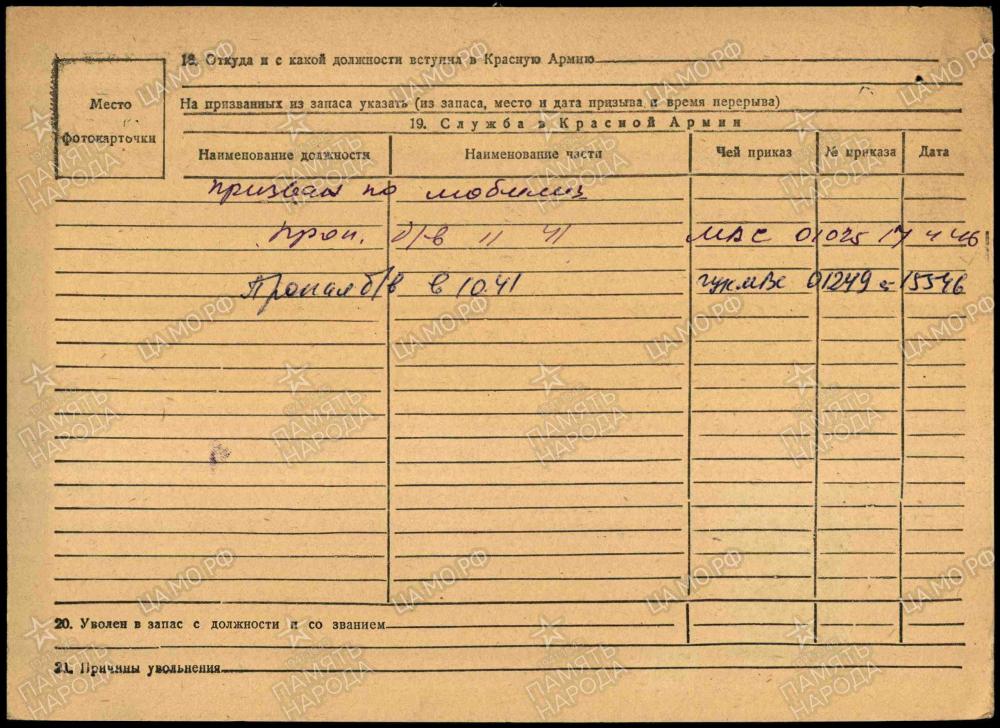 18. Откуда и с какой должности вступил в Красную Армию
Место
фотокарточки
На призванных из запаса указать (из запаса, место и дата призыва и время перерыва)
19. Служба в Красной Армии
Наименование должности Наименование части Чей приказ № приказа Дата
призван по мобилиз
проп. б/в 11 41 МВС 01025 17 4 46
Пропал б/в в 10.41 ГУК МВС 01249 15546
20. Уволен в запас с должности и со званием
21. Причины увольнения
ПАМЯТЬ НАРОДА
ЦАМО.РФ